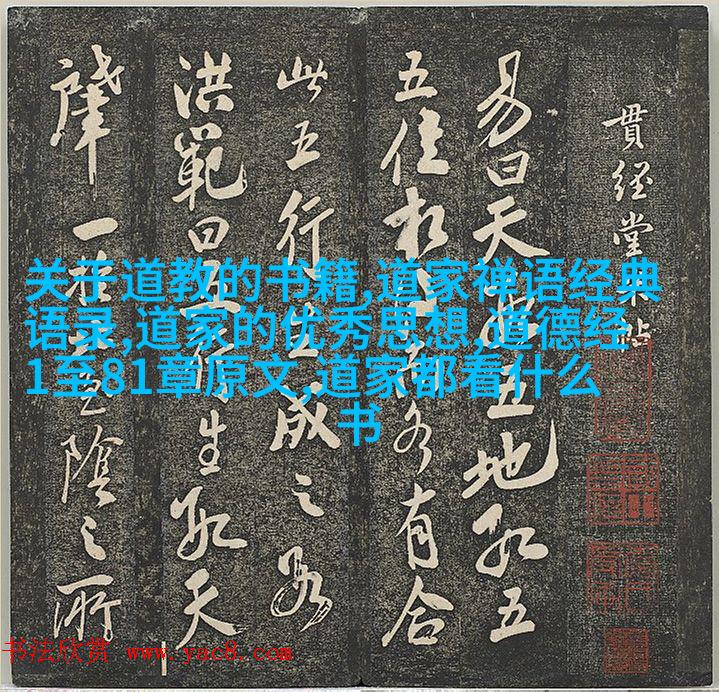 貫經堂米帖
易曰天地五地数五
五位相各有合
此五行生成之数
洪範曰五行生数天
一陰之所
关于道教的书籍,道家禅语经典
语录,道家的优秀思想,道德经
1至81章原文,道家都看什么
书
书法欣赏 www.yac8.com